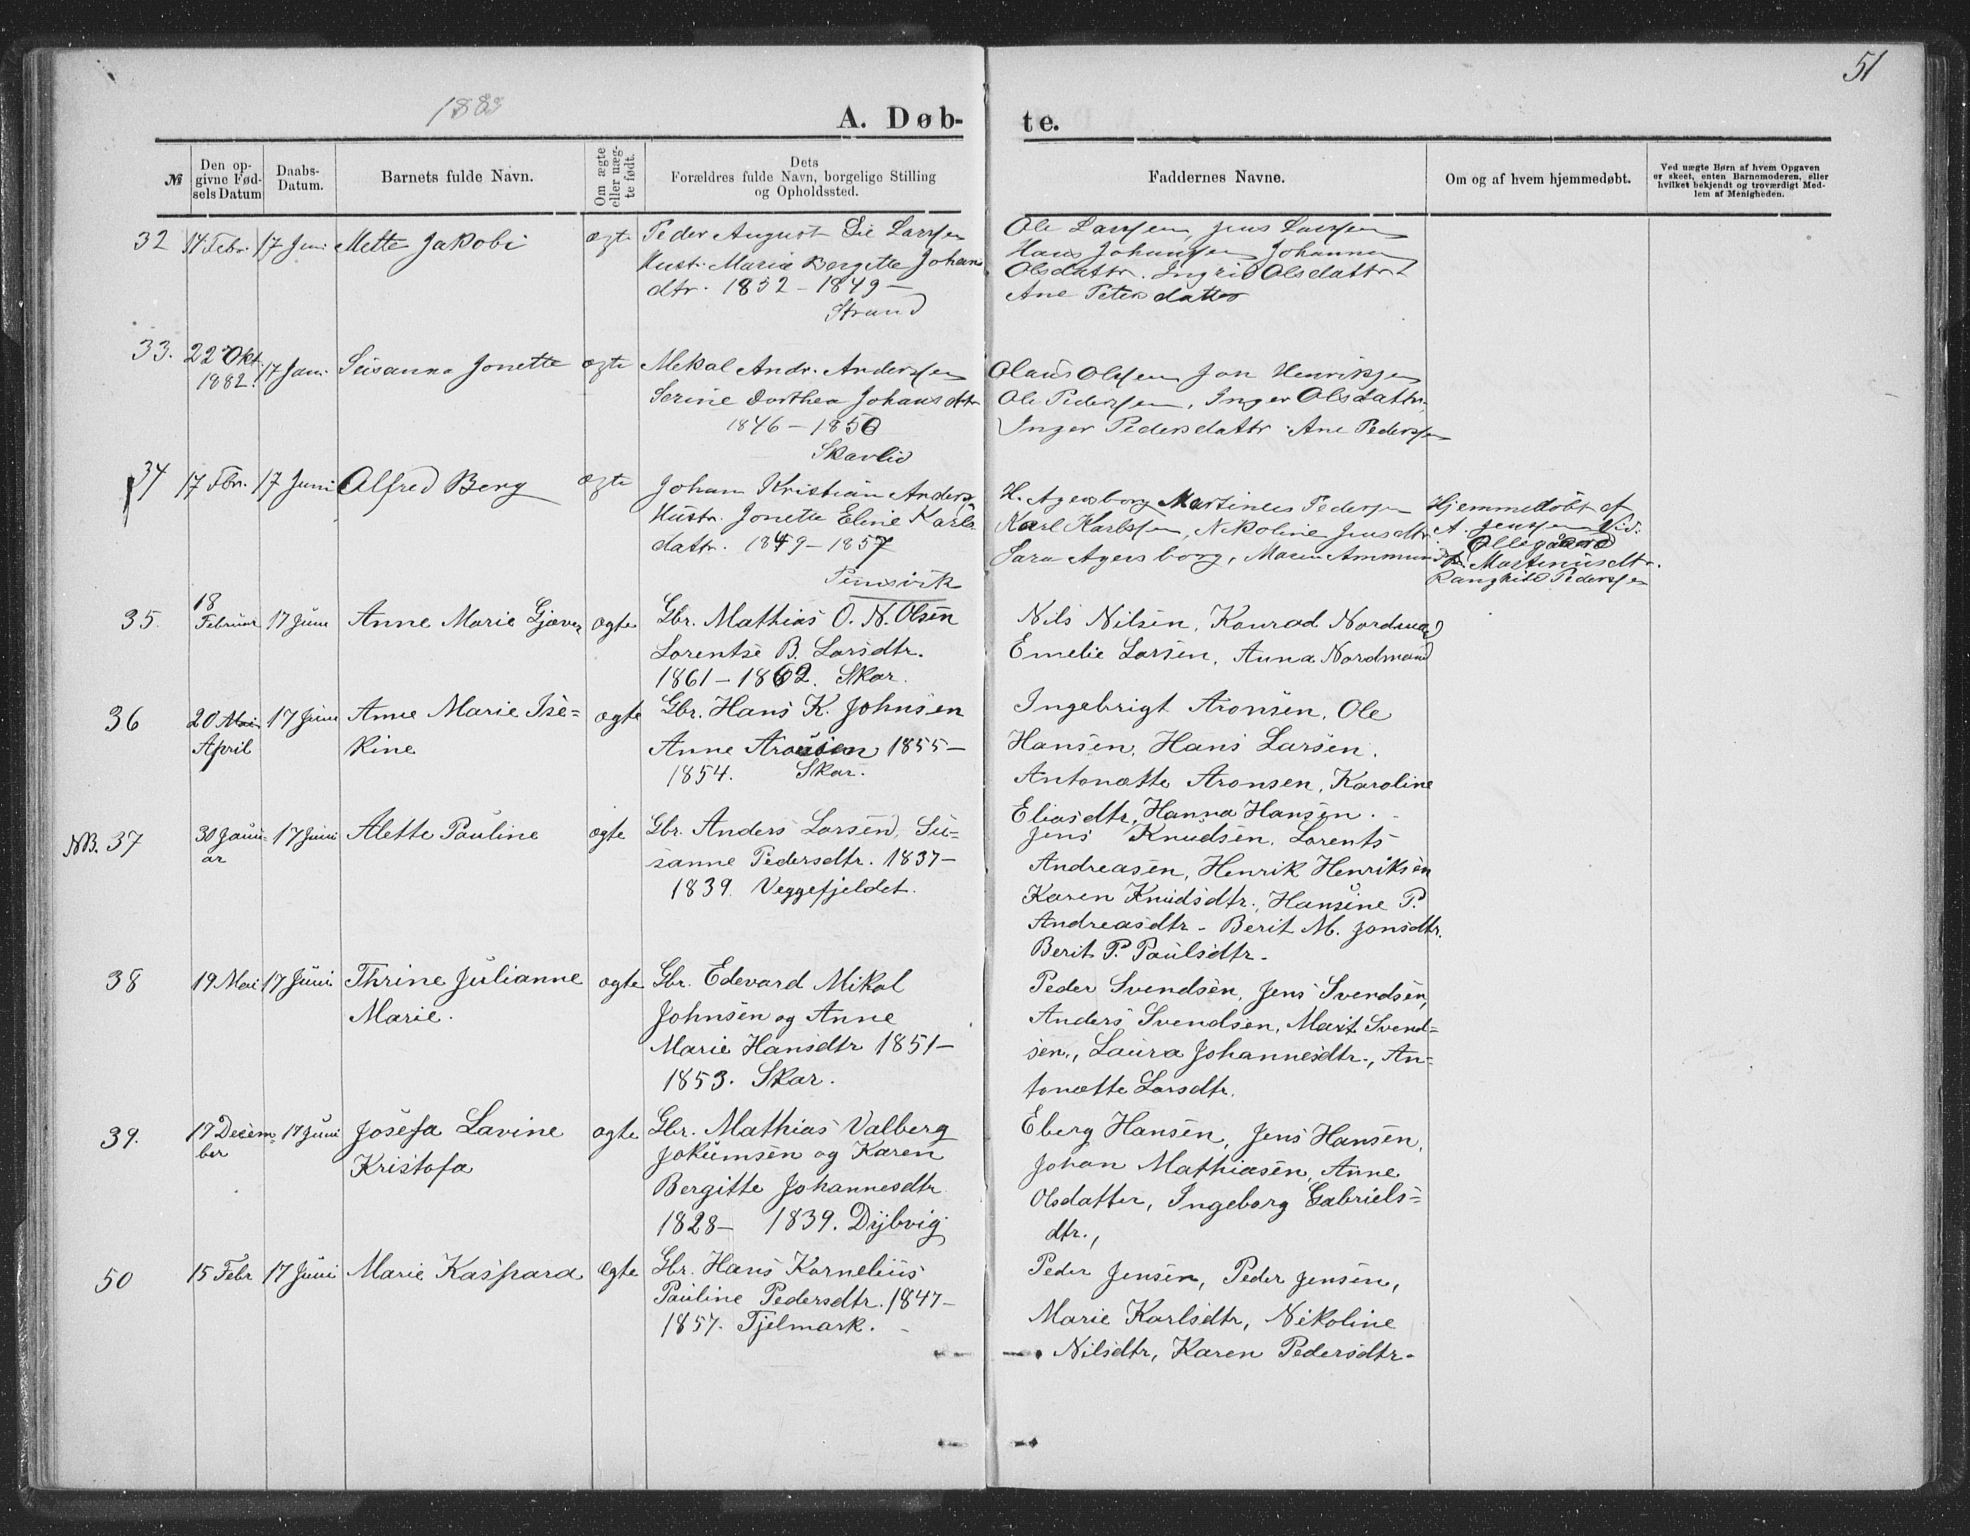 51
1883
A. Døb-
te.
№
Den op-
givne Fød-
sels Datum
Daabs-
Datum.
Barnets fulde Navn.
Om ægte
eller uæg-
te født.
Dets
Forældres fulde Navn, borgelige Stilling
og Opholdssted.
Faddernes Navne.
Om og af hvem hjemmedøbt.
Ved uægte Børn af hvem Opgaven
er skeet, enten Barnemoderen, eller
hvilket bekjendt og troværdigt Med-
lem af Menigheden.
32 14 Febr. 17 Juni Mette Jakobi ægte Peder August Larsen
Hust. Maria Bergette Johans
dtr. 1852 - 1849 -
Strand
Ole Larsen, Jens Larsen
Hans Johansen Johanna
Olsdattr. Ingrid Olsdattr
Ane Petersdatter
33. 22 Okt. 1882. 17 Juni Susanna Jonette ægte Mekal Andr. Andersen
Serine Dorthea Johansdtr
1846 - 1850
Skavlid
Olaus Olsen Jon Henriksen
Ole Pedersen, Inger Olsdattr.
Inger Pedersdattr. Ane Pedersen
34 17 Fbr. 17 Juni Alfred Berg ægte Johan Kristian Anders
Hustr. Jonette Eline Karls
dattr. 1849 - 1857
H. Agersborg Martinus Pedersen
Karl Karlsen, Nikoline Jensdtr
Sara Agersborg, Maren
Hjemmedøbt af
A. Jensen
Martinusdtr.
Ranghild Pedersen
35. 18 Februar 17 Juni Anne Marie Gjæver ægte Gbr. Mathias O. N. Olsen
Lorentse B. Larsdtr.
1861 - 1862. Skar.
Nils Nilsen, Konrad Nordmand
Emelie Larsen, Anna Nordmand
36 20 Mai April 17 Juni Anne Marie Ise=
kine
ægte Gbr. Hans K. Johnsen
Anne Aronsen 1855 -
1854. Skar.
Ingebrigt Aronsen, Ole
Hansen, Hans Larsen.
Antonætte Aronsen, Karoline
Eliasdtr, Hanna Hansen.
NB. 37 30 Janu-
ar 17 Juni Alette Pauline ægte Gbr. Anders Larsen, Su=
sanne Pedersdtr. 1837 -
1839. Veggefjeldet.
Jens Knudsen, Lorents
Andreasen, Henrik Henriksen
Karen Knudsdtr., Hansine P.
Andreasdtr - Berit M. Jonsdtr.
Berit P. Paulsdtr.
38 19 Mai 17 Juni Thrine Julianne
Marie.
ægte Gbr. Edevard Mikal
Johnsen og Anne
Marie Hansdtr 1851 -
1853. Skar.
Peder Svendsen, Jens Svendsen,
Anders Svendsen, Marit Svend=
sen., Laura Johannesdtr., An=
tonætte Larsdtr.
39. 17 Decem-
ber 17 Juni Josefa Lavine
Kristofa
ægte Gbr. Mathias Valberg
Jokumsen og Karen
Bergitte Johannesdtr
1828 - 1839. Dybvig
Eberg Hansen, Jens Hansen,
Johan Mathiasen, Anne
Olsdatter, Ingeborg Gabriels=
dtr.,
50 15 Febr 17 Juni Marie Kaspara ægte Gbr. Hans Kornelius
Pauline Pedersdtr. 1847 -
1857. Tjelmark.
Peder Jensen, Peder Jensen,
Marie Karlsdtr, Nikoline
Nilsdtr, Karen Pedersdtr.